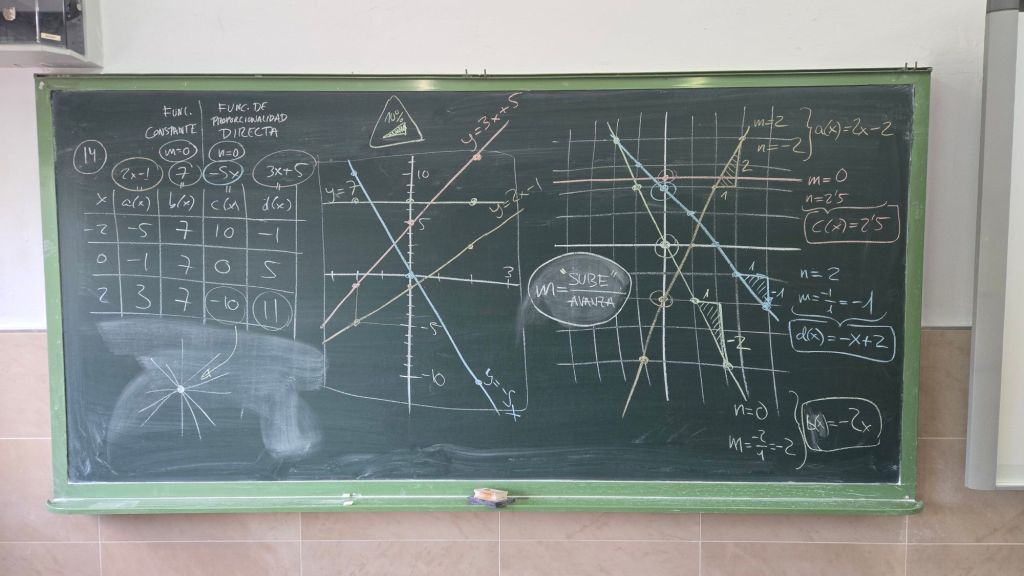 14
FUNC. CONSTANTE
m=0
FUNC. DE PROPORCIONALIDAD DIRECTA
n=0
2x-1 7 -5x 3x+5
x a(x) b(x) c(x) d(x)
-2 -5 7 10 -1
0 -1 7 0 5
2 3 7 -10 11
10%
y=3x+5
y=7
y=2x-1
10
5
-5
-10
m= "SUBE"
AVANZA
m=2
n=-2
a(x)=2x-2
2
1
m=0
n=2'5
c(x)=2'5
1
-1
n=2
m=-1/1=-1
d(x)=-x+2
1
-2
n=0
=-2
=-2x